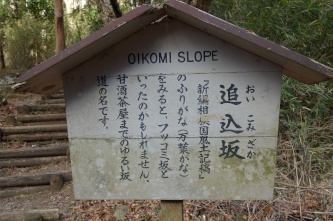 OIKOMI SLOPE
追込坂
おい こみ ざか
『新編相模国風土記稿』
のふりがな(万葉がな)
をみると、フッコミ坂と
いったのかもしれません。
甘酒茶屋までのゆるい坂
道の名です。